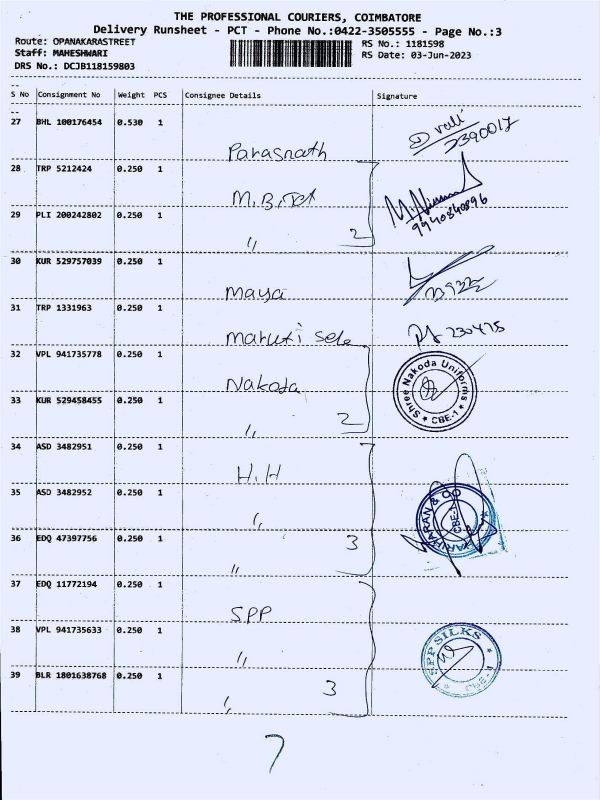 THE PROFESSIONAL COURIERS, COIMBATORE
Delivery Runsheet - PCT - Phone No.:0422-3505555 - Page No.:3
Route: OPANAKARASTREET
RS No.: 1181598
Staff: MAHESHWARI
RS Date: 03-Jun-2023
DRS No.: DCJB118159803
S No Consignment No Weight PCS Consignee Details Signature
27 BHL 100176454 0.530 1
Parasnath
28 TRP 5212424 0.250 1
M.B.
29 PLI 200242802 0.250 1
9940840896
" 2
30 KUR 529757039 0.250 1
Maya
31 TRP 1331963 0.250 1
Maruti Sele 230475
32 VPL 941735778 0.250 1
Nakoda
Shree Nakoda Uniforms
* CBE-1 *
33 KUR 529458455 0.250 1
" 2
34 ASD 3482951 0.250 1
H.H
35 ASD 3482952 0.250 1
"
CBE-1
36 EDQ 47397756 0.250 1
" 3
37 EDQ 11772194 0.250 1
SPP
38 VPL 941735633 0.250 1
"
SPP SILKS
* CBE-1 *
39 BLR 1801638768 0.250 1
" 3
7